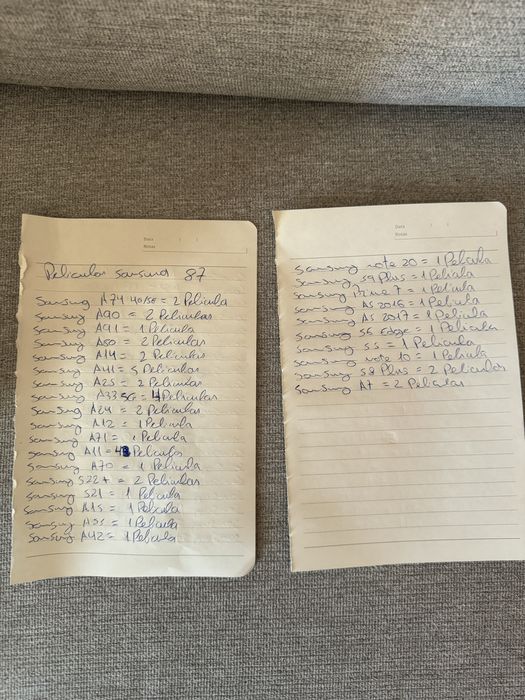 Data
Notas
Peliculas Samsung 87
Samsung A74 4G/5G = 2 Pelicula
Samsung A90 = 2 Peliculas
Samsung A91 = 1 Pelicula
Samsung A80 = 2 Peliculas
Samsung A14 = 2 Peliculas
Samsung A41 = 5 Peliculas
Samsung A25 = 2 Peliculas
Samsung A33 5G = 4 Peliculas
Samsung A24 = 2 Peliculas
Samsung A12 = 1 Pelicula
Samsung A71 = 1 Pelicula
Samsung A11 = Peliculas
Samsung A70 = 1 Pelicula
Samsung S22+ = 2 Peliculas
Samsung S21 = 1 Pelicula
Samsung A15 = 1 Pelicula
Samsung = 1 Pelicula
Samsung A42 = 1 Pelicula
Data
Notas
Samsung note 20 = 1 Pelicula
Samsung S9 Plus = 1 Pelicula
Samsung Prime 7 = 1 Pelicula
Samsung A5 2016 = 1 Pelicula
Samsung A5 2017 = 1 Pelicula
Samsung S6 edge = 1 Pelicula
Samsung S5 = 1 Pelicula
Samsung note 10 = 1 Pelicula
Samsung S8 Plus = 2 Peliculas
Samsung A7 = 2 Peliculas